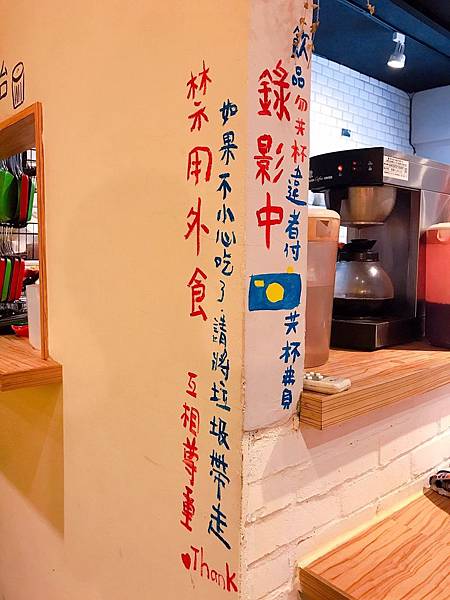 飲品勿共杯違者付共杯費
錄影中
如果不小心吃了,請將垃圾帶走
禁用外食
互相尊重
Thank